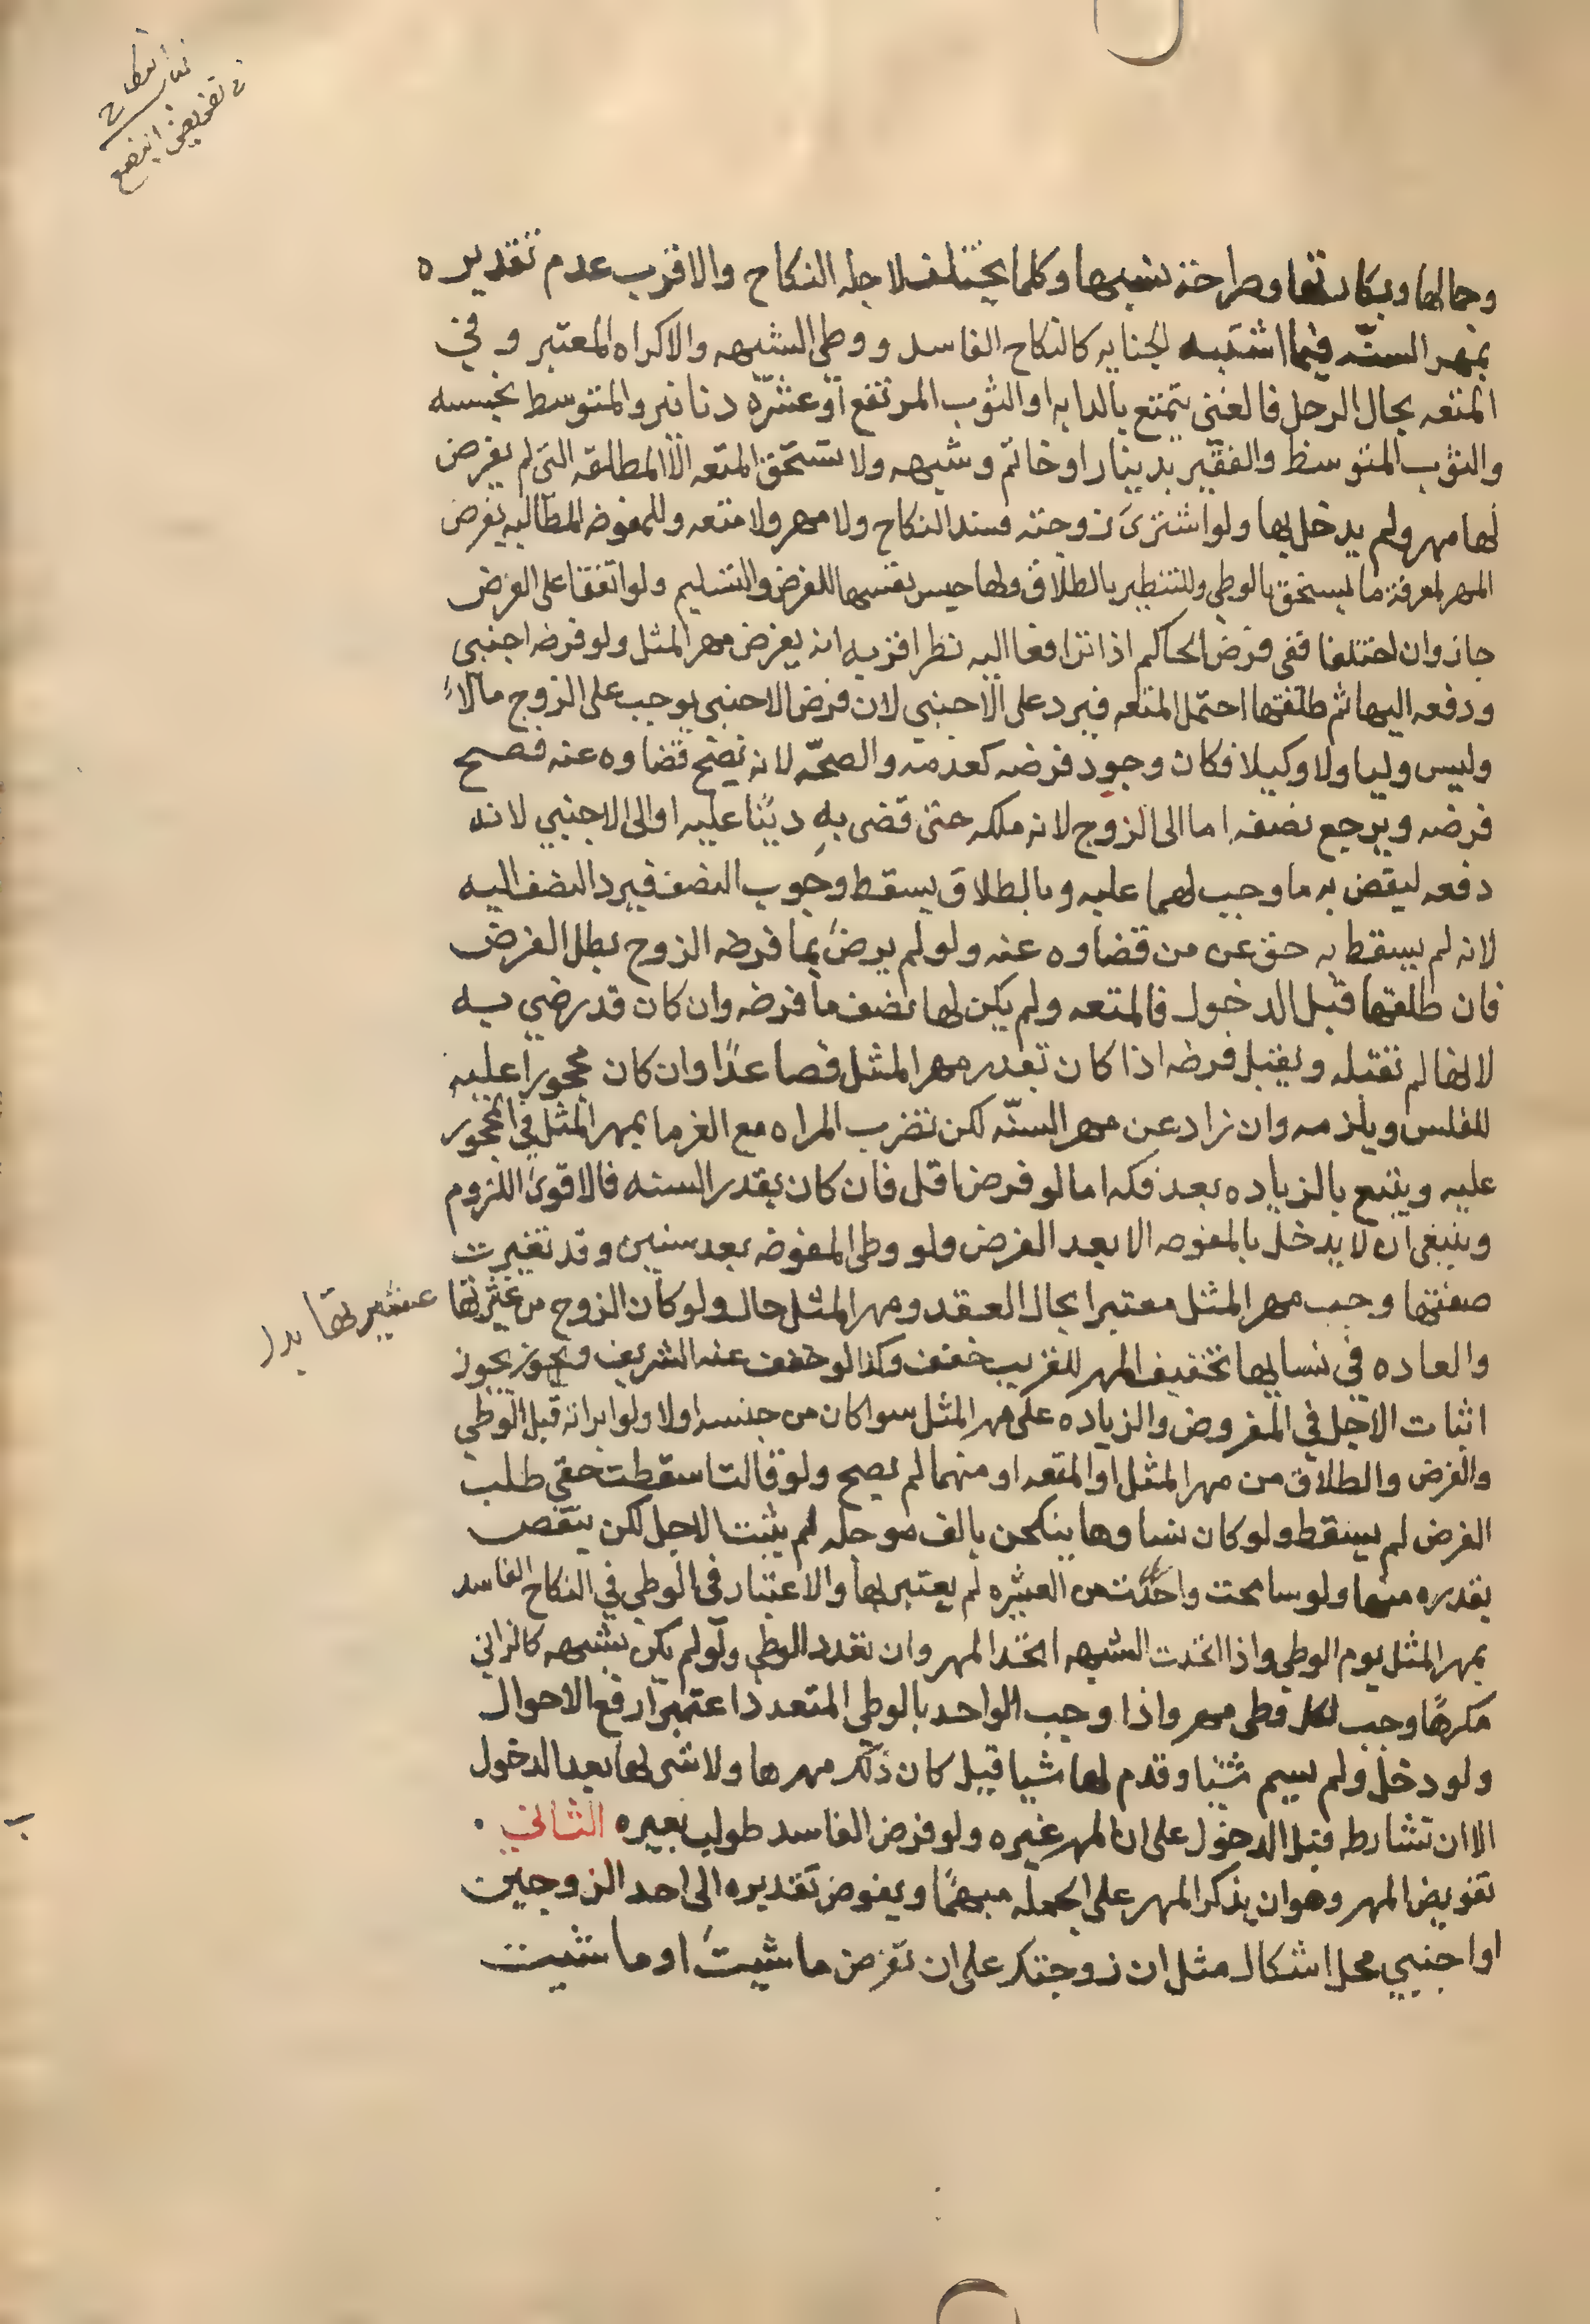 كتاب النكاح
في تفويض البضع
وجمالها وبكارتها وصراحة نسبها وكلما يختلف لاجله النكاح والاقرب عدم تقديره
بمهر السنّه فيما اشبه الجنايه كالنكاح الفاسد ووطى الشبهه والاكراه المعتبر وفي
المتعه بحال الرجل فالغنى يتمتع بالدابه او الثوب المرتفع او عشرة دنانير والمتوسط بخمسه
والثوب المتوسط والفقير بدينار او خاتم وشبهه ولا تستحق المتعه الا المطلقه التى لم يفرض
لها مهر ولم يدخل بها ولو اشترى زوجته فسد النكاح ولا مهر ولا متعه وللمفوضه المطالبه بفرض
المهر لمعرفة ما يستحق بالوطى وللتشطير بالطلاق ولها حبس نفسها للفرض والتسليم ولو اتفقا على الفرض
جاز وان اختلفا ففى فرض الحاكم اذا ترافعا اليه نظر اقربه انه يفرض مهر المثل ولو فرضه اجنبي
ودفعه اليها ثم طلقها احتمل المتعه فيرد على الاجنبي لان فرض الاجنبي يوجب على الزوج مالاً
وليس وليا ولا وكيلا فكان وجود فرضه كعدمه والصحّه لانه يصح قضاوه عنه فصح
فرضه ويرجع نصفه اما الى الزوج لانه ملكه حتى قضى به دينا عليه او الى الاجنبي لانه
دفعه ليقض به ما وجب لها عليه وبالطلاق يسقط وجوب النصف فيرد النصف اليه
لانه لم يسقط به حق عن من قضاوه عنه ولو لم يرض بما فرضه الزوج بطل الفرض
فان طلقها قبل الدخول فالمتعه ولم يكن لها نصف ما فرضه وان كان قد رضي به
لانها لم تقبله ويقبل فرضه اذا كان بقدر مهر المثل فصاعدًا وان كان محجورا عليه
للفلس ويلزمه وان زاد عن مهر السنّه لكن تضرب المراه مع الغرما بمهر المثل في المحجور
عليه ويتبع بالزياده بعد فكه اما لو فرض اقل فان كان بقدر السنه فالاقوى اللزوم
وينبغي ان لا يدخل بالمفوضه الا بعد الفرض ولو وطى المفوضه بعد سنين وقد تغيرت
صفتها وجب مهر المثل معتبرا بحال العقد ومهر المثل حال ولو كان الزوج من عترتها
عشيرتها بدل
والعاده في نسايها تخفيف المهر للقريب خفف وكذا لو خفف عنه الشريف ويجوز يجوز
اثبات الاجل في المفروض والزياده على مهر المثل سوا كان من جنسه او لا ولو ابراته قبل الوطي
والفرض والطلاق من مهر المثل او المتعه او منهما لم يصح ولو قالت اسقطت حقي طلب
الفرض لم يسقط ولو كان نساوها ينكحن بالف موجله لم يثبت الاجل لكن ينقص
بقدره منها ولو سامحت واحدت من العشره لم يعتبر بها والاعتبار في الوطي في النكاح الفاسد
بمهر المثل يوم الوطي واذا اتحدت الشبهه اتحد المهر وان تعدد الوطي ولو لم يكن بشبهه كالزاني
مكرهًا وجب لكل وطى مهر واذا وجب الواحد بالوطى المتعدد اعتبر ارفع الاحوال
ولو دخل ولم يسم شيا وقدم لها شيا قبل كان ذلك مهرها ولا شى لها بعد الدخول
الا ان تشارطه قبل الدخول على ان المهر غيره ولو فرض الفاسد طولب بغيره الثاني
تفويض المهر وهو ان يذكر المهر على الجمله مبهمًا ويفوض تقديره الى احد الزوجين
او اجنبي محل اشكال مثل ان زوجتك على ان تفرض ما شيت او ما شيت